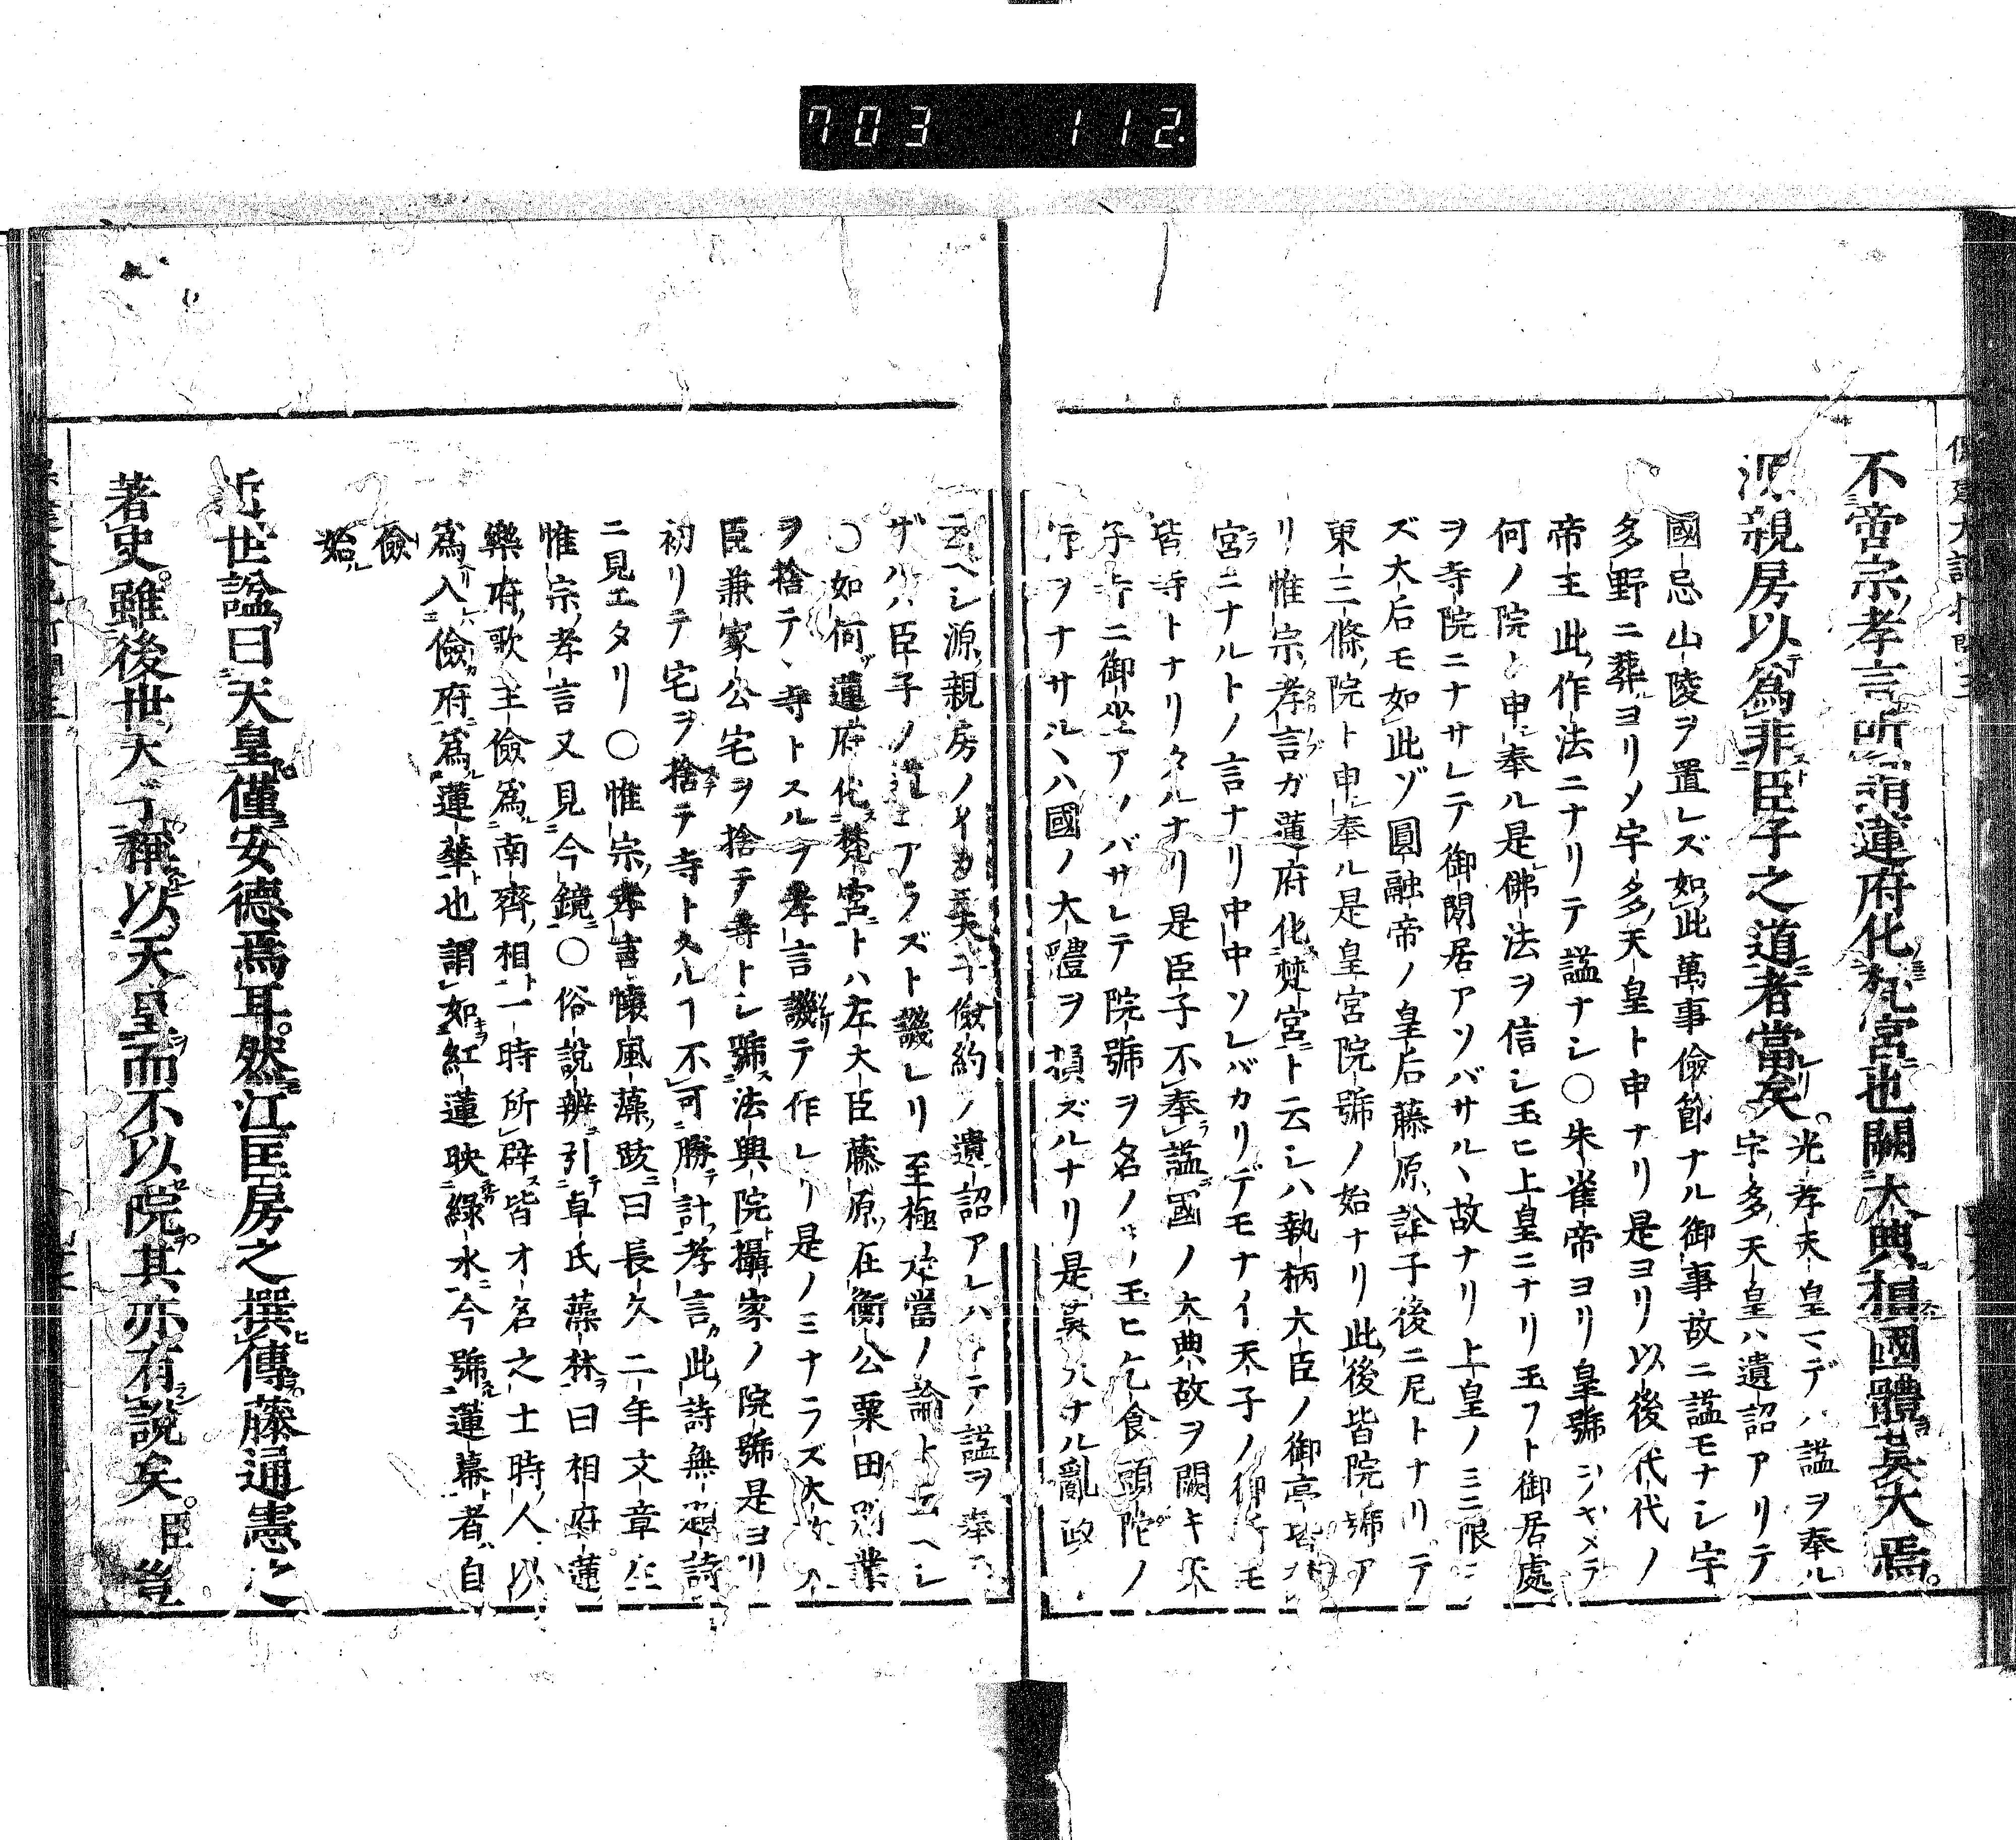 703 112
不啻宗孝言所謂蓮府化梵宮也闕大典損國體莫大焉
源親房以爲非臣子之道者當矣光孝天皇マデハ諡ヲ奉ル
宇多天皇ハ遺詔アリテ
國忌山陵ヲ置レズ如此萬事儉節ナル御事故ニ諡モナシ宇
多野ニ葬ヨリメ宇多天皇ト申ナリ是ヨリ以後代代ノ
帝王此作法ニナリテ諡ナシ〇朱雀帝ヨリ皇號ヲヤメテ
何ノ院ト申奉ル是佛法ヲ信シ玉ヒ上皇ニナリ玉フト御居處
ヲ寺院ニナサレテ御閑居アソバサル丶故ナリ上皇ノミニ限
ズ大后モ如此ゾ圓融帝ノ皇后藤原詮子後ニ尼トナリテ
東三條院ト申奉ル是皇宮院號ノ始ナリ此後皆院號ア
リ惟宗孝言ガ蓮府化梵宮ト云シハ執柄大臣ノ御亭皆
宮ニナルトノ言ナリ中中ソレバカリデモナイ天子ノ御所モ
皆寺トナリタルナリ是臣子不奉諡國ノ大典故ヲ闕キ天
子寺ニ御坐アソバサレテ院號ヲ名ノ玉ヒ乞食頭陀ノ
ヲナサル丶ハ國ノ大體ヲ損ズルナリ是莫大ナル亂政
云ヘシ源親房ノイカ天子儉約ノ遺詔アレハトテ諡ヲ奉ラ
ザルハ臣子ノ アラズト譏レリ至極允當ノ論ト云ヘシ
〇如何蓮府化梵宮トハ左大臣藤原在衡公粟田別業
ヲ捨テ寺トスルヲ孝言譏テ作レリ是ノミナラズ太政大
臣兼家公宅ヲ捨テ寺トシ號法興院攝家ノ院號是ヨリ
初リテ宅ヲ捨テ寺トスルヿ不可勝計孝言此詩無題詩
ニ見エタリ〇惟宗孝言懷風藻跋曰長久二年文章生
惟宗孝言又見今鏡〇俗説辨引卓氏藻林曰相府蓮
樂府歌王儉爲南齊相一時所辟皆才名之士時人以
爲入儉府爲蓮華也謂如紅蓮映綠水今號蓮幕者自
儉
始
近世諡曰天皇僅安德焉耳然江匡房之撰傳藤通憲之
著史雖後世大 稱以天皇而不以院其亦有説矣臣 等